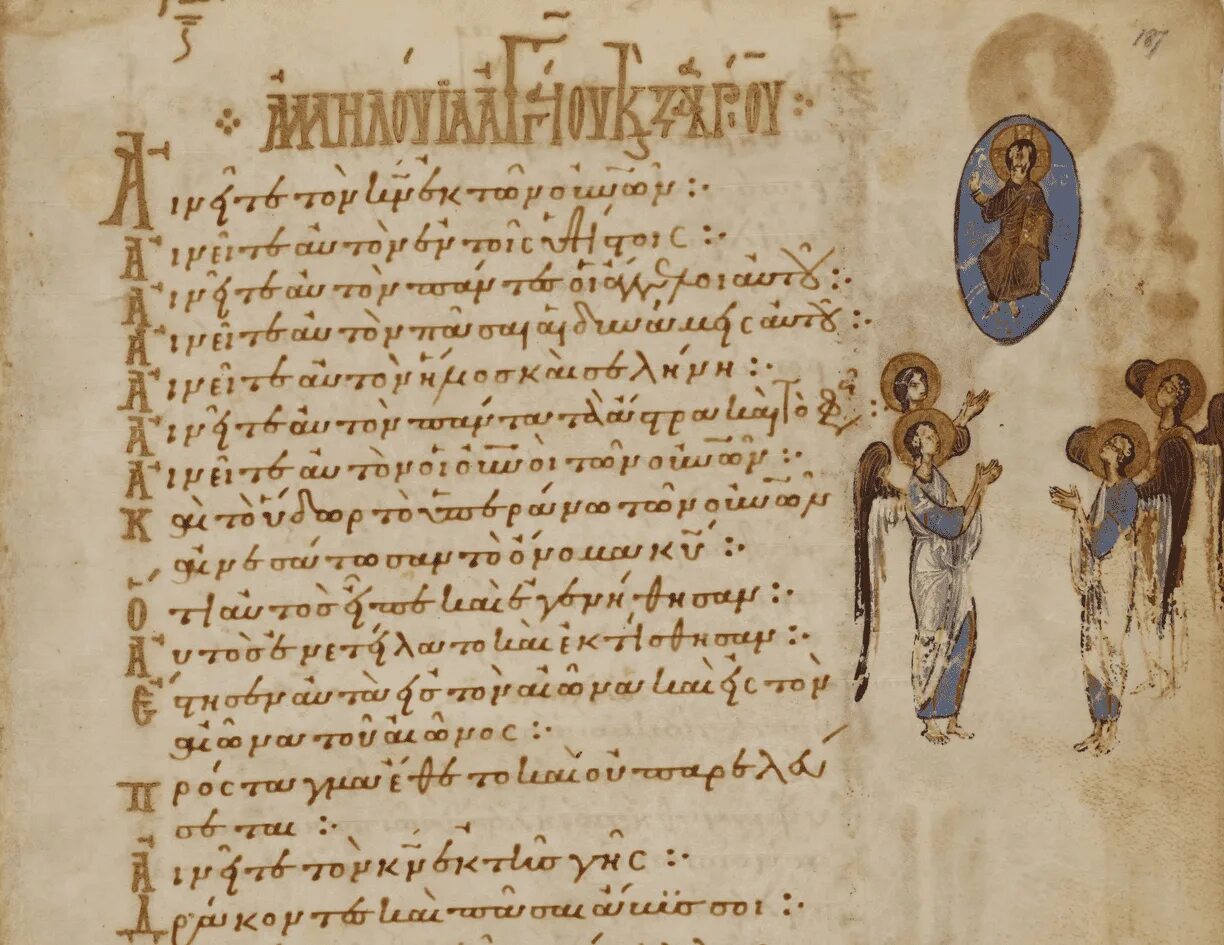 ἀλληλούϊα ἀγγαίου κ ζαχαρίου
Αἰνεῖτε τὸν κν ἐκ τῶν οὐνῶν :·
Αἰνεῖτε αὐτὸν ἐν τοῖς ὑψίστοις :·
Αἰνεῖτε αὐτὸν πάντες οἱ ἄγγελοι αὐτοῦ :·
Αἰνεῖτε αὐτὸν πᾶσαι αἱ δυνάμεις αὐτοῦ :·
Αἰνεῖτε αὐτὸν ἥλιος καὶ σελήνη :·
Αἰνεῖτε αὐτὸν πάντα τὰ ἄστρα καὶ τὸ φῶς :·
Αἰνεῖτε αὐτὸν οἱ οὐνοὶ τῶν οὐνῶν :·
Καὶ τὸ ὕδωρ τὸ ὑπεράνω τῶν οὐνῶν
αἰνεσάτωσαν τὸ ὄνομα κυ :·
Ὅτι αὐτὸς εἶπε καὶ ἐγενήθησαν :·
Αὐτὸς ἐνετείλατο καὶ ἐκτίσθησαν :·
Ἔστησεν αὐτὰ εἰς τὸν αἰῶνα καὶ εἰς τὸν
αἰῶνα τοῦ αἰῶνος :·
Πρόσταγμα ἔθετο καὶ οὐ παρελεύ
σεται :·
Αἰνεῖτε τὸν κν ἐκ τῆς γῆς :·
Δράκοντες καὶ πᾶσαι ἄβυσσοι :·
187